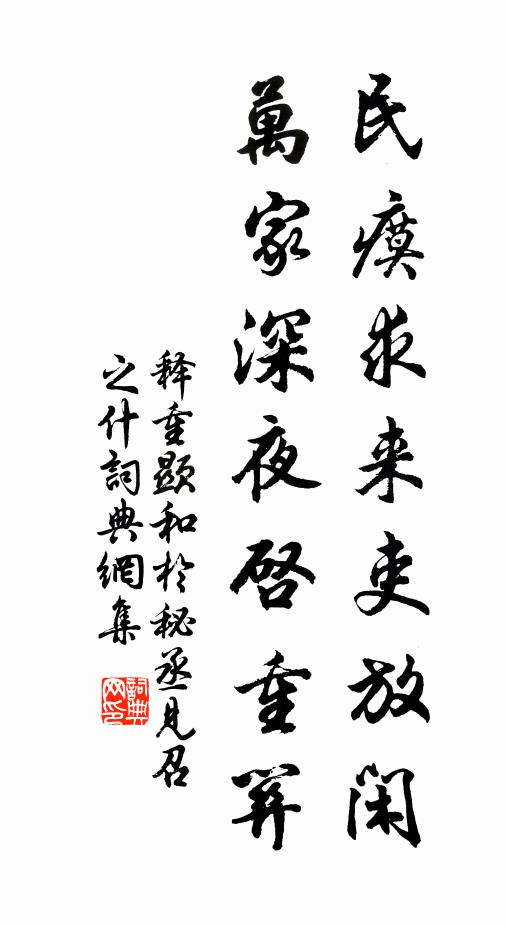 民瘼求来吏放闲
萬家深夜啓重關
释重顯和於秘丞見召
之什詞典網集
詞典网印